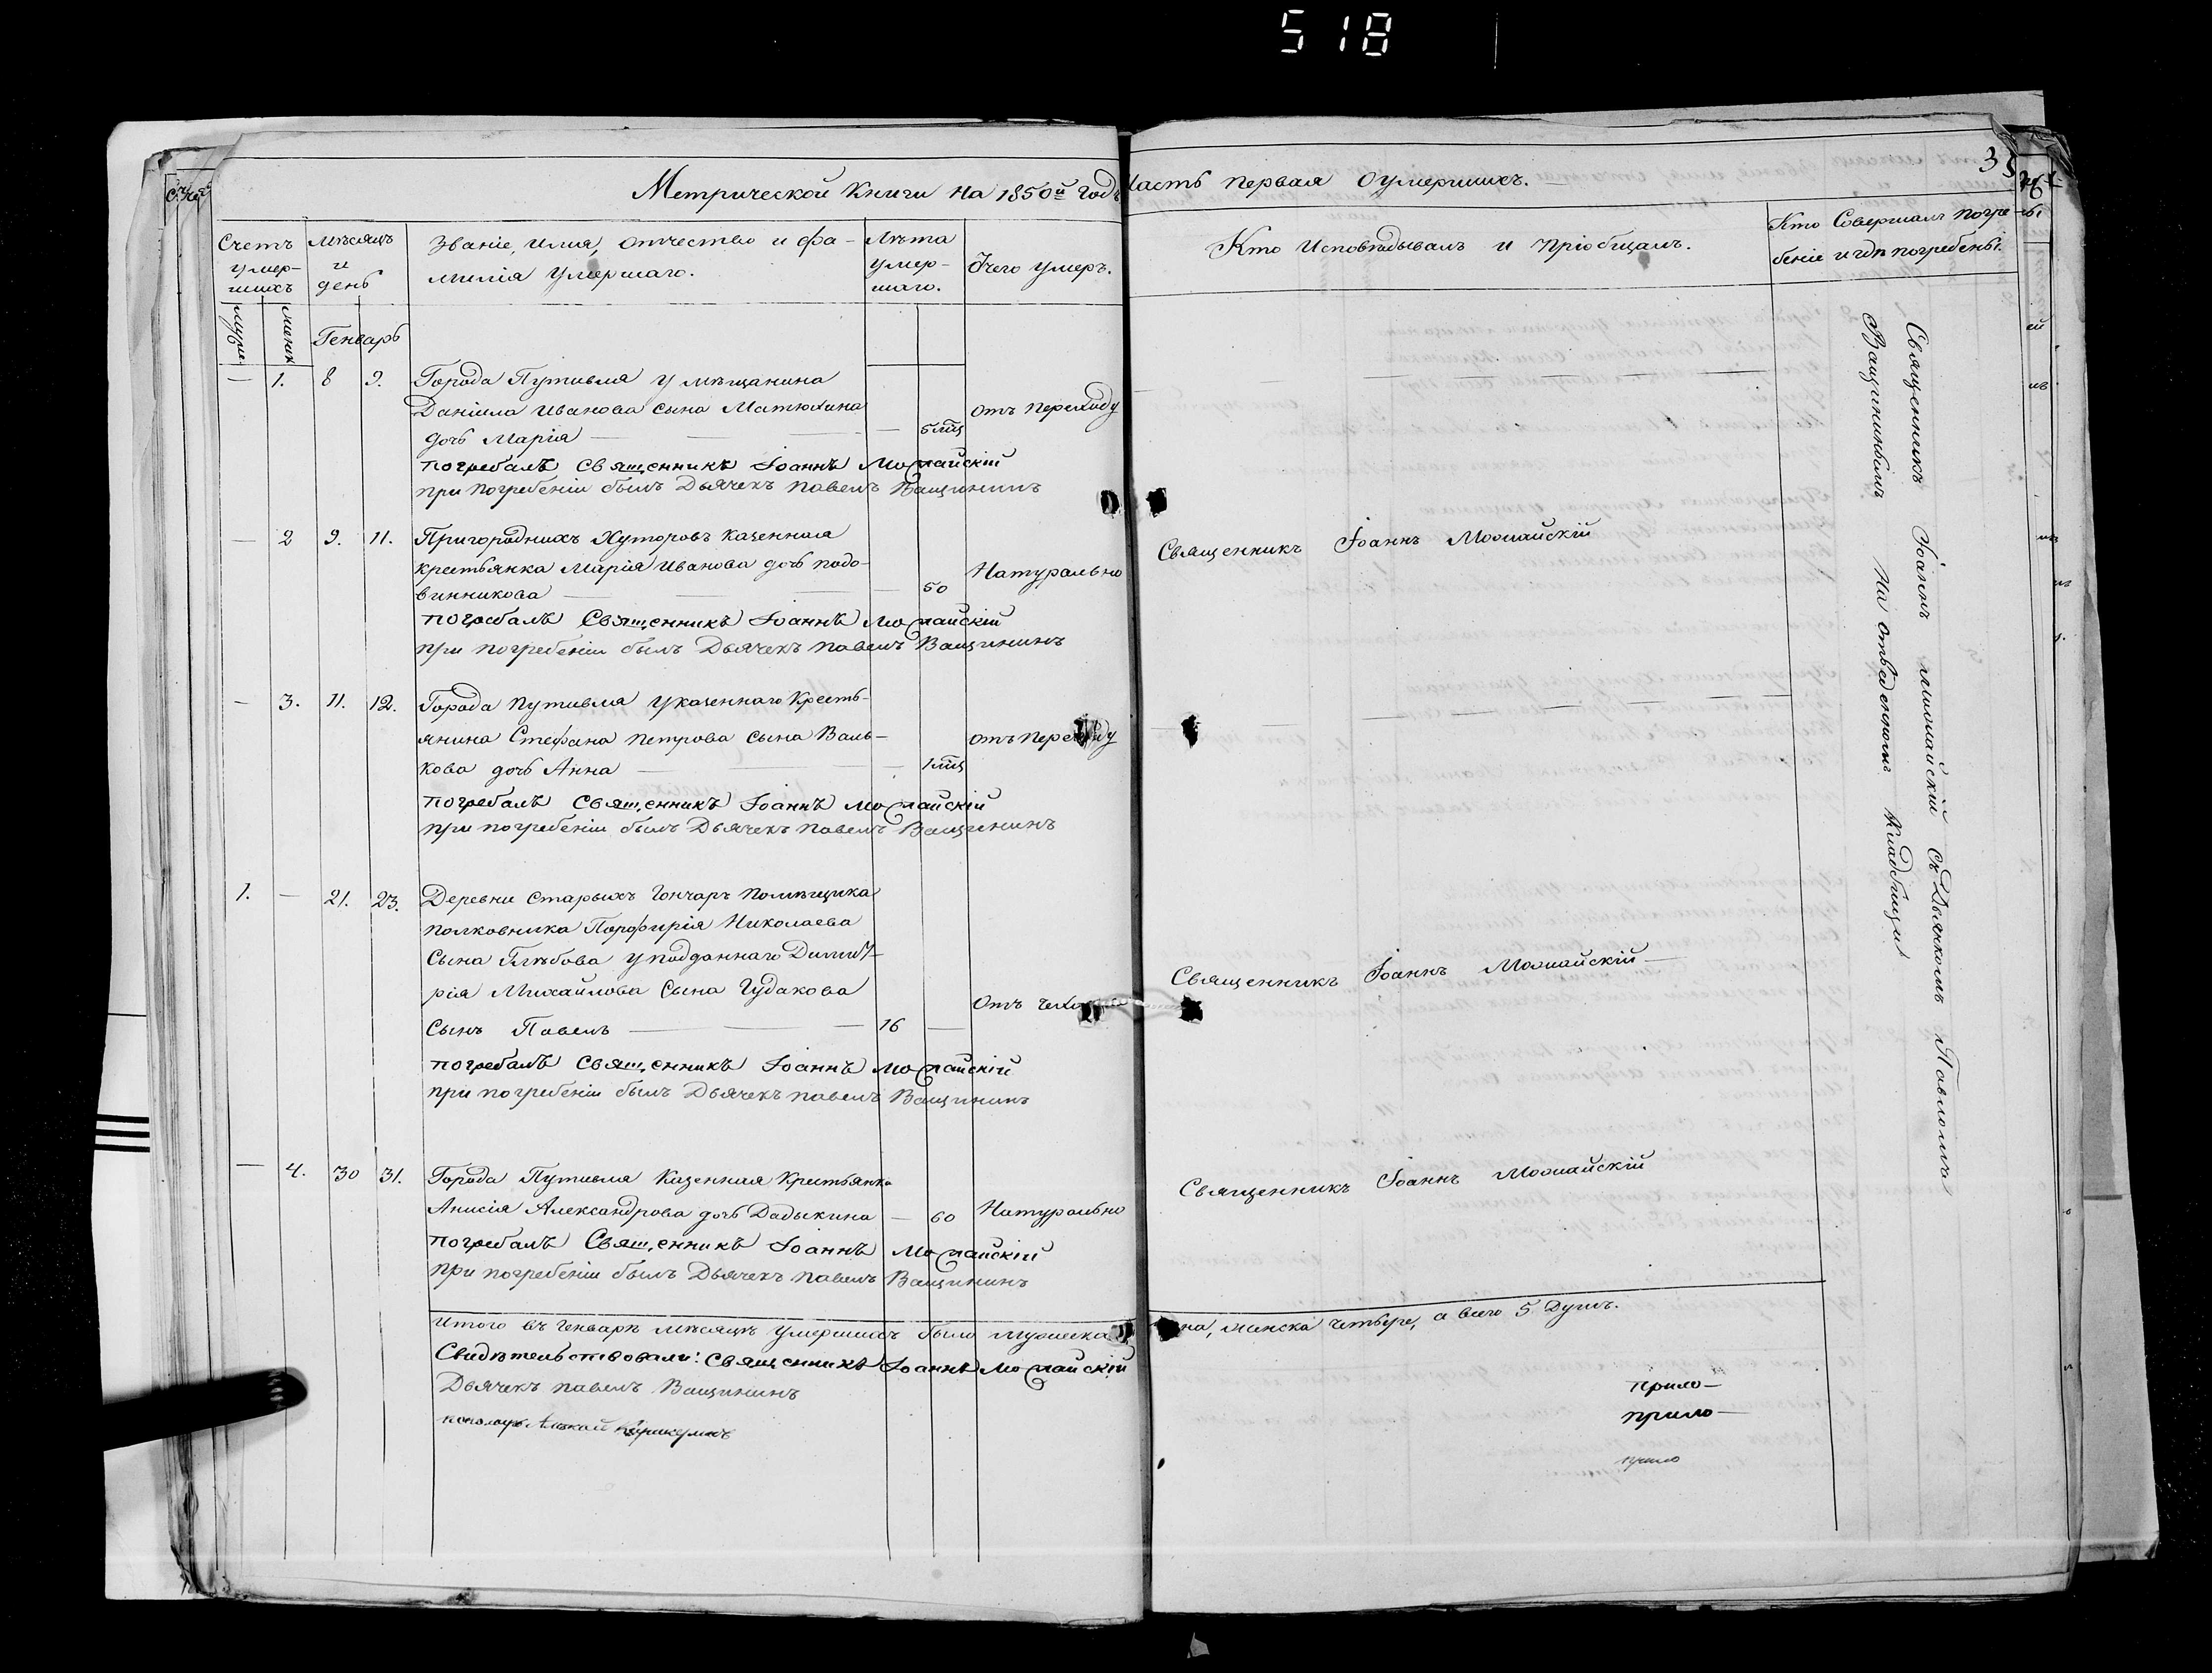 518
35
Метрической Книги на 1850й Годъ Часть первая о умершихъ.
Счетъ умер-шихъ
Мѣсяцъ и день
Званіе, имя, отчество и фа-
милія умершаго.
Лѣта умер-шаго.
Отчего умеръ.
Кто Исповѣдывалъ и пріобщалъ.
Кто Совершалъ погре-
беніе и гдѣ погребены.
Генварь
— 1. 8 9. Города Путивля у мѣщанина
Даніила Иванова сына Матюхина
дочь Марія — — — — 5 мѣс
отъ переходу
погребалъ Священникъ Іоаннъ Можайскій
при погребеніи былъ Дьячекъ павелъ Ващининъ
— 2 9. 11. Пригородныхъ Хуторовъ казенная
крестьянка Марія Иванова дочь подо-
винникова — — — — 50
Натурально
Священникъ Іоаннъ Можайскій
погребалъ Священникъ Іоаннъ Можайскій
при погребеніи былъ Дьячекъ павелъ Ващининъ
— 3. 11. 12. Города путивля у казеннаго Кресть-
янина Стефана петрова сына Валь-
кова дочь Анна — — — 1 мѣс
отъ переходу
погребалъ Священникъ Іоаннъ Можайскій
при погребеніи былъ Дьячекъ павелъ Ващининъ
1. — 21. 23. Деревни Старыхъ Гончаръ Помѣщика
полковника Порфирія Николаева
Сына Глѣбова у подданнаго Димит-
рія Михайлова Сына Гудакова
Сынъ Павелъ — — — 16 —
Отъ
Священникъ Іоаннъ Можайскій —
погребалъ Священникъ Іоаннъ Можайскій
при погребеніи былъ Дьячекъ павелъ Ващининъ
— 4. 30 31. Города Путивля Казенная Крестьянка
Анисія Александрова дочь Дадыкина — 60
Натурально
Священникъ Іоаннъ Можайскій
погребалъ Священникъ Іоаннъ Можайскій
при погребеніи былъ Дьячекъ павелъ Ващининъ
Священникъ Іоаннъ Можайскій съ Дьячкомъ Павломъ
Ващининымъ На отведенномъ Кладбищи
Итого въ Генварѣ мѣсяцѣ умершихъ было мужеска одна, женска четыре, а всего 5 душъ.
Свидѣтельствовали: Священникъ Іоаннъ Можайскій
Дьячекъ павелъ Ващининъ
прило—
прило—
прило